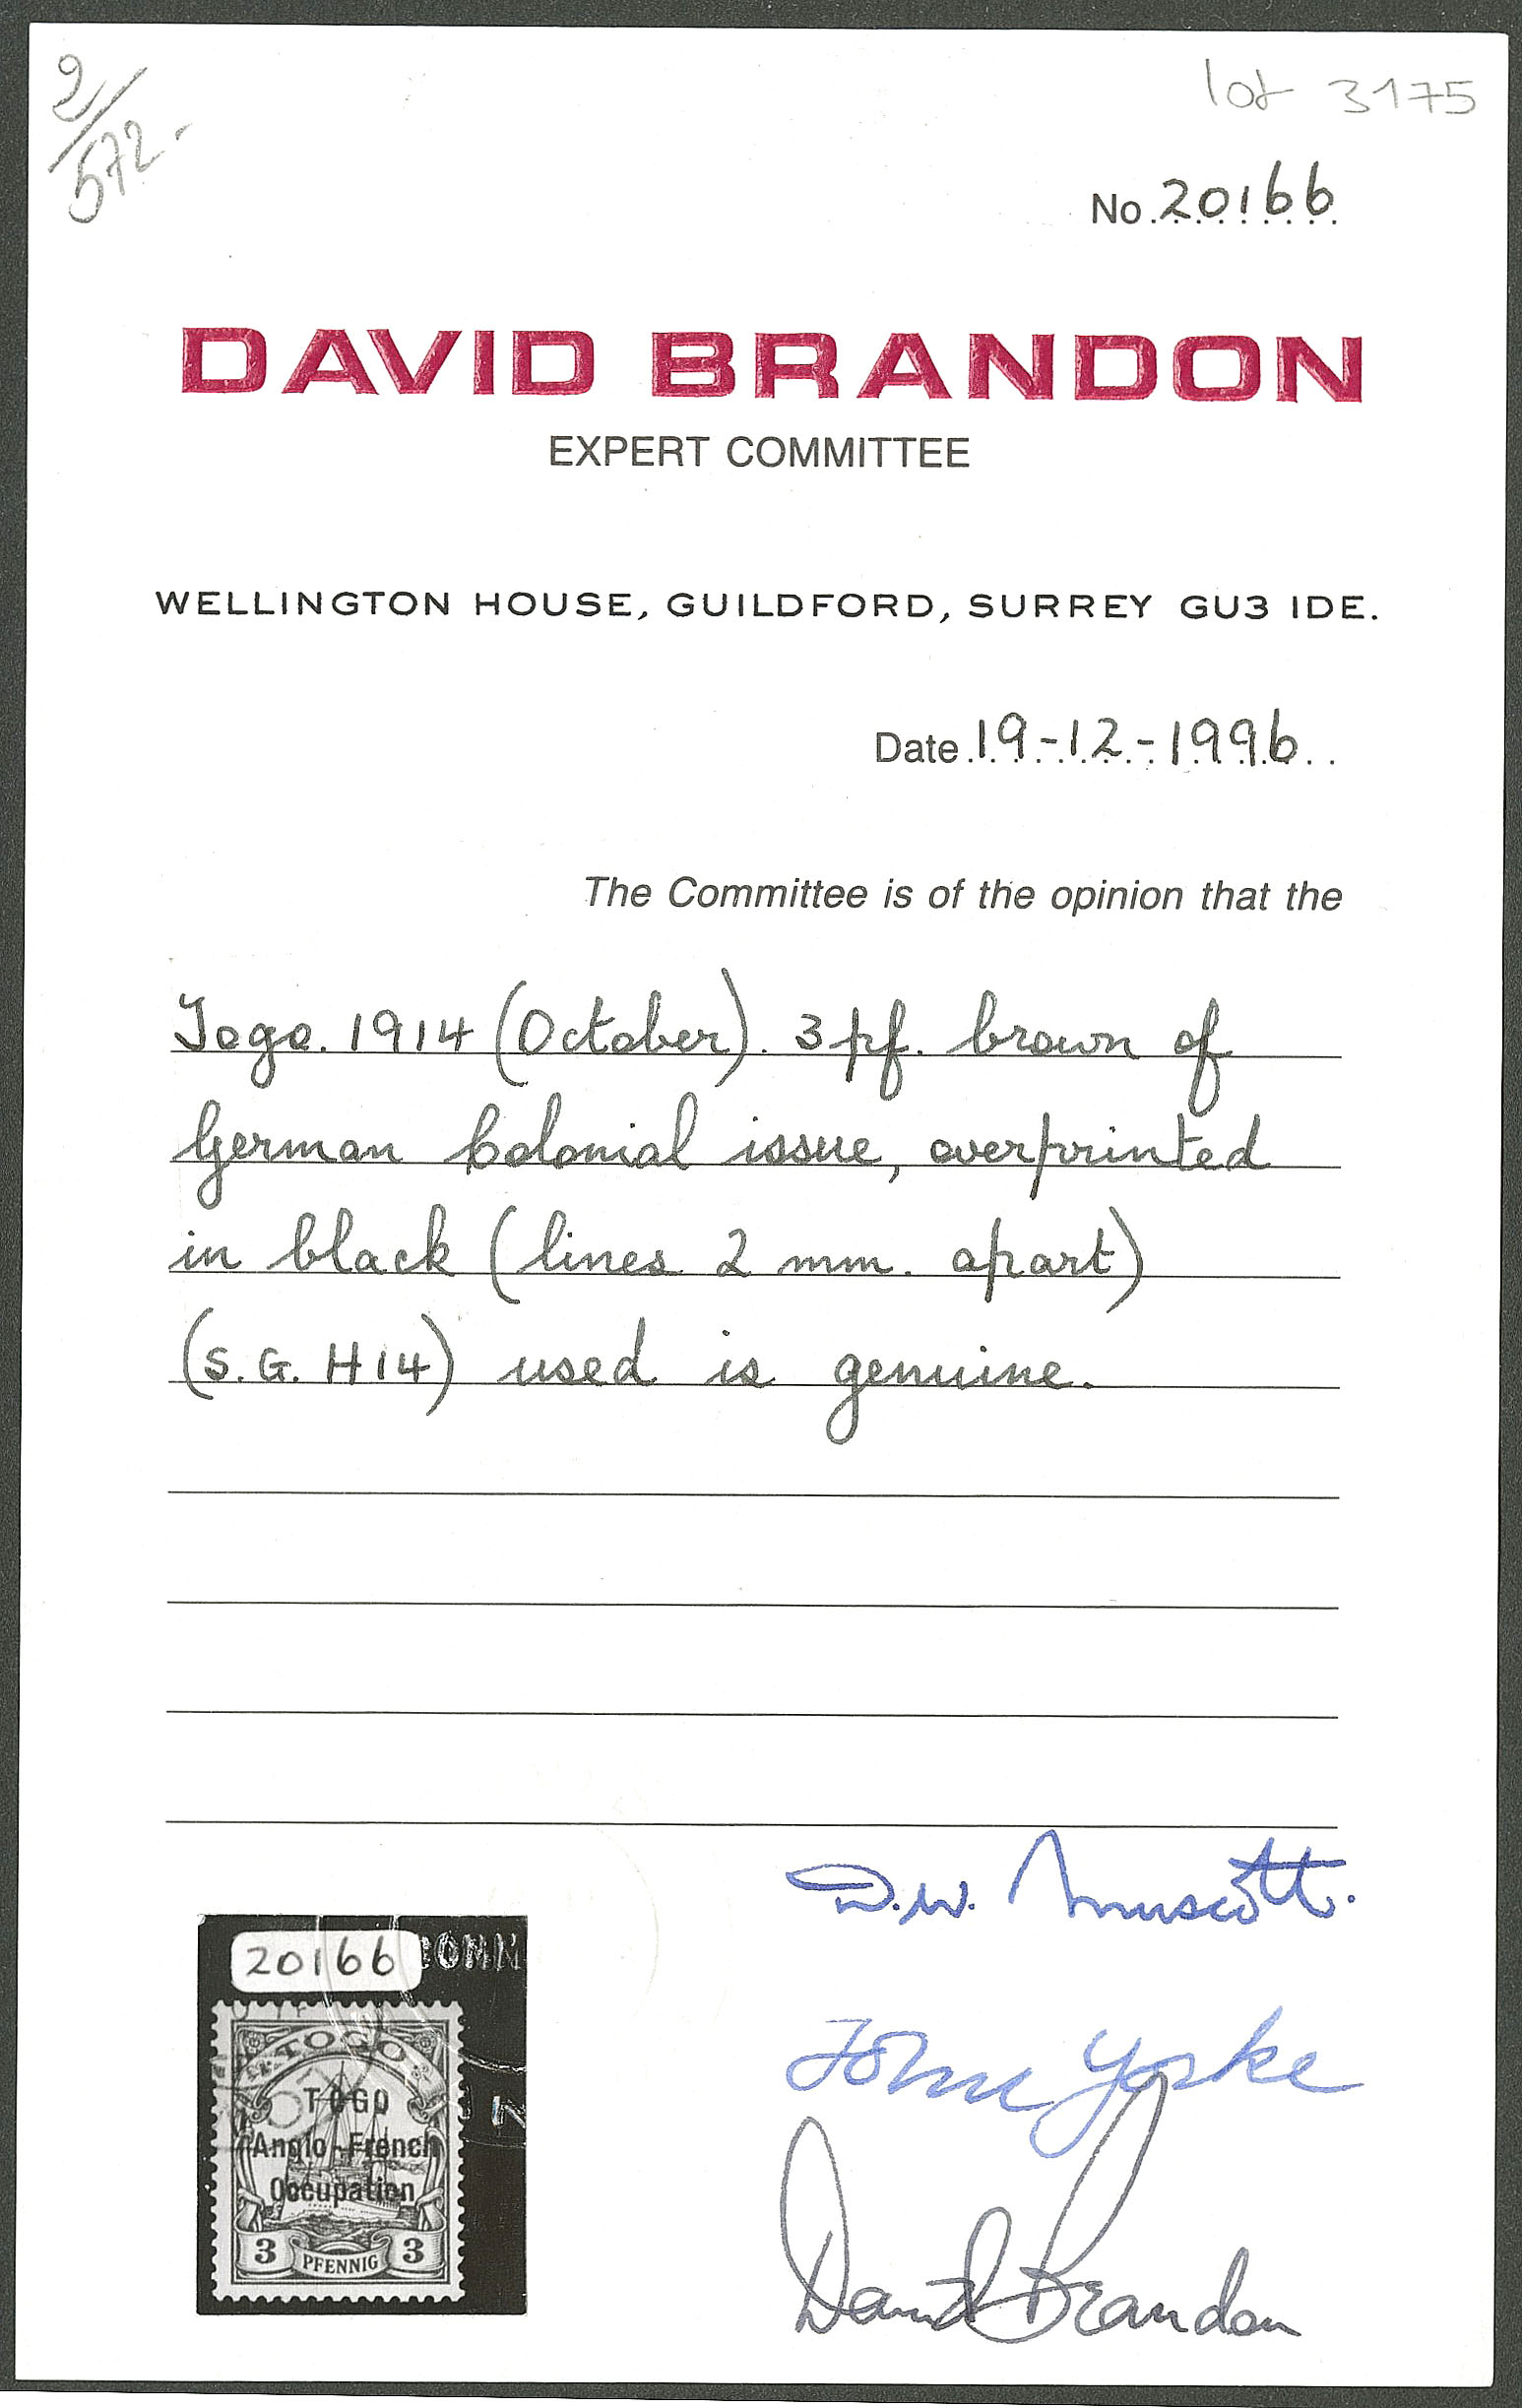 2/572.
lot 3175
No. 20166
DAVID BRANDON
EXPERT COMMITTEE
WELLINGTON HOUSE, GUILDFORD, SURREY GU3 1DE.
Date 19-12-1996
The Committee is of the opinion that the
Togo. 1914 (October). 3 pf. brown of
German Colonial issue, overprinted
in black (lines 2 mm. apart)
(S.G. H14) used is genuine.
D.W. Muscott.
John Yorke
David Brandon
20166
COMM
TOGO
TOGO
Anglo-French
Occupation
3 PFENNIG 3